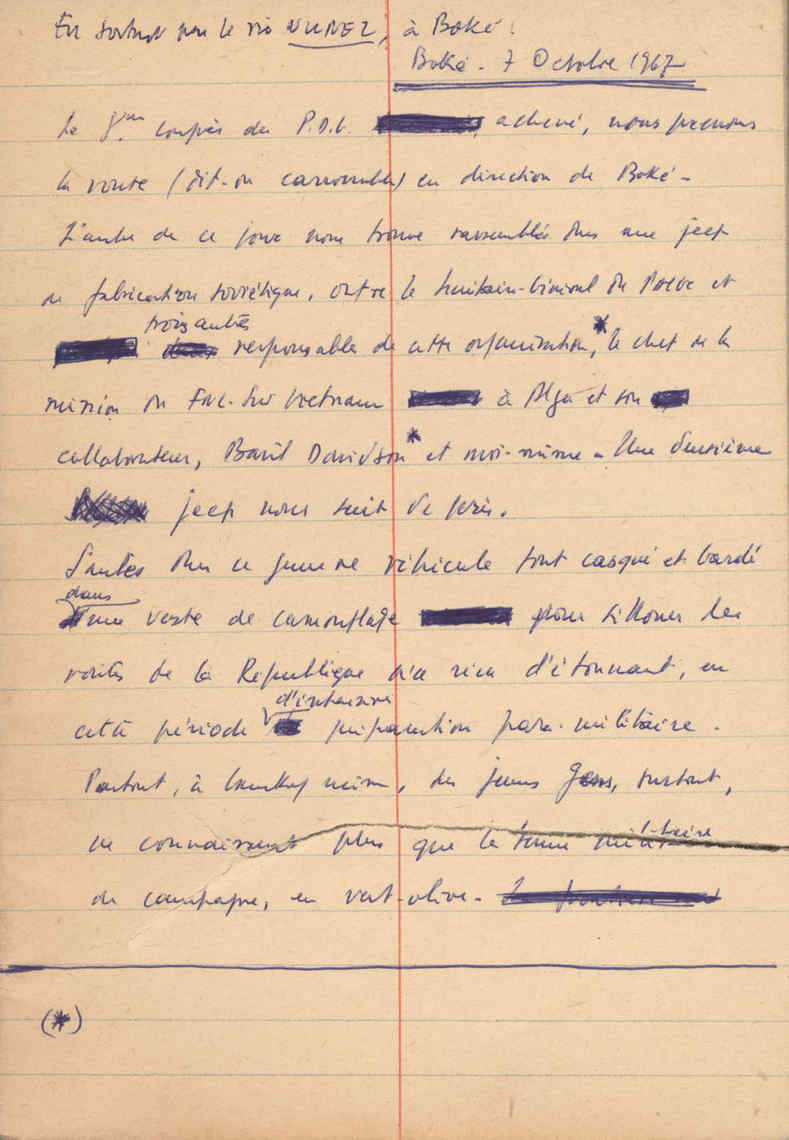 En sortant par le rio NUNEZ, à Boké.
Boké - 7 Octobre 1967
Le 8ème congrès du P.D.G. achevé, nous prenons
la route (dit-on carrossable) en direction de Boké -
L'aube de ce jour nous trouve rassemblés dans une jeep
de fabrication soviétique, outre le du et
trois autres
responsables de cette organisation,* le chef de la
mission du F.N.L. - Sud Vietnam à Alger et son
collaborateur, Basil Davidson* et moi-même - Une deuxième
jeep nous suit de près.
Sauter dans ce genre de véhicule tout casqué et bardé
dans
une veste de camouflage pour sillonner les
routes de la République n'a rien d'étonnant, en
cette période d'intensive préparation para-militaire.
Partout, à Conakry même, des jeunes gens, surtout,
ne connaissent plus que la tenue militaire
de campagne, en vert-olive -
(*)